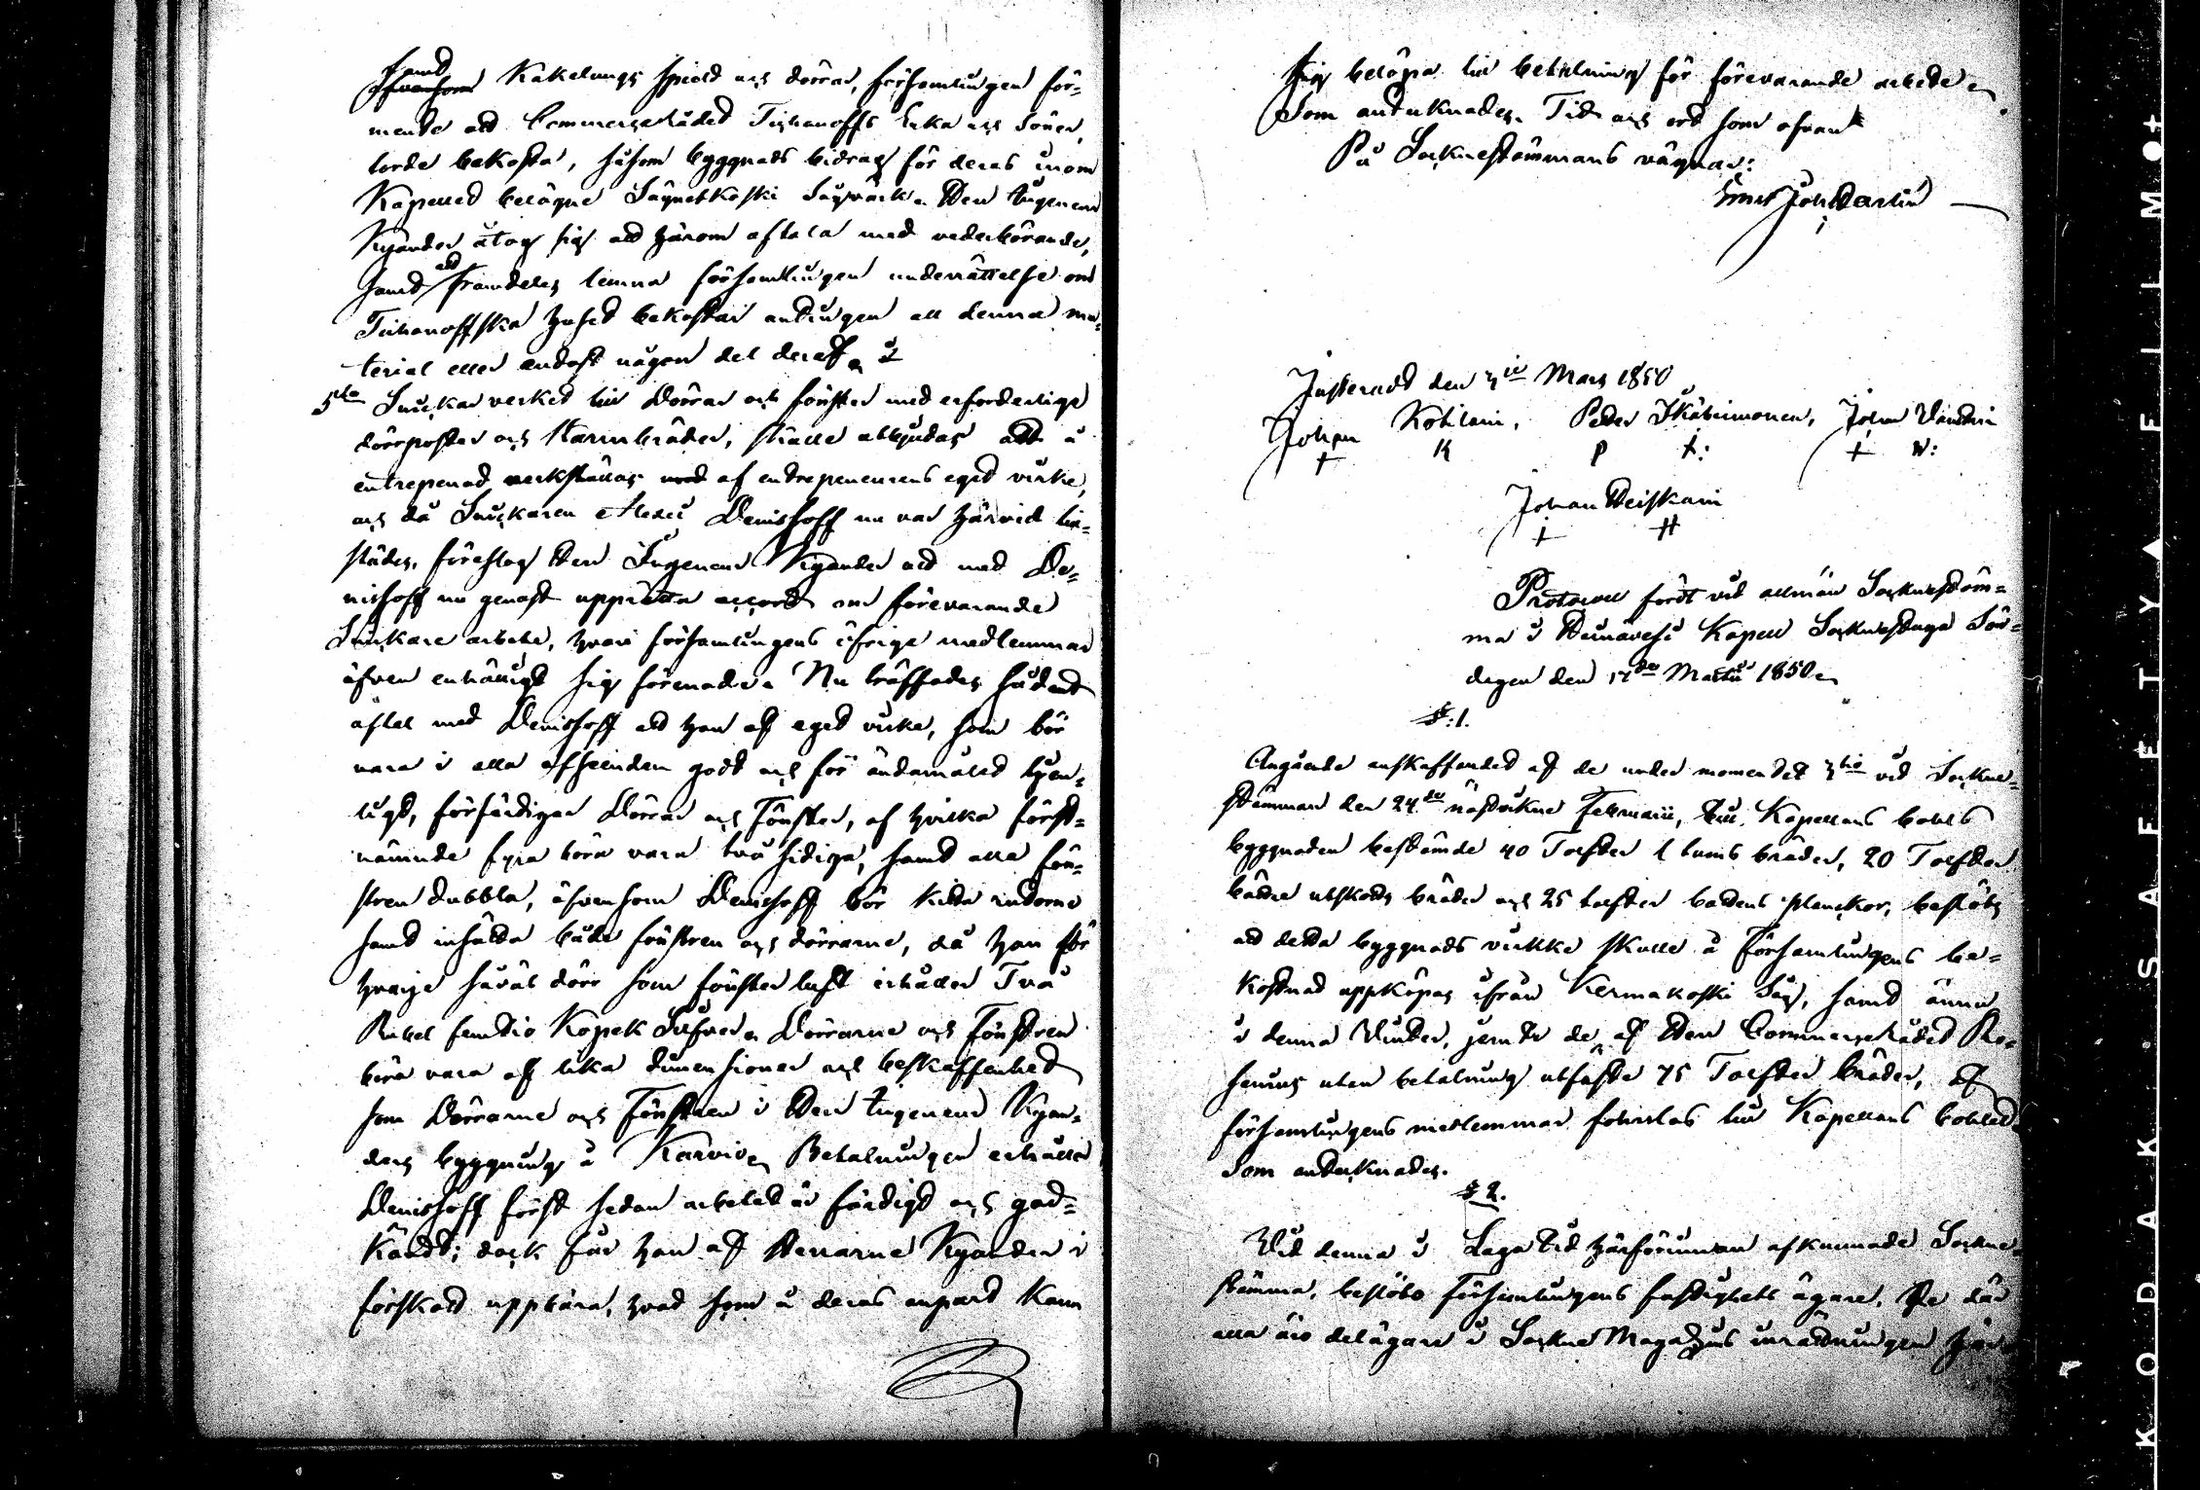 samt
äfvensom Kakelungs spield och dörrar, församlingen för-
mente att Commerserådet Tichanoffs Enka och Söner
torde bekosta, såsom byggnads bidrag för deras inom
Kapellet belägne Säynetkoski Sågverk. Herr Ingenieur
Kyander åtog sig att härom aftala med vederbörande,
samt att framdeles lemna församlingen underrättelse om
Tichanoffska huset bekostar antingen all denna ma-
terial eller endast någon del deraf.
5to Snickar verket till Dörrar och fönster med erforderlige
dörrposter och Karmbräder, skulle utbjudas att å
entreprenad verkställas med af entrepreneurens eget virke,
och då Snickaren Alexei Denishoff nu var härvid till-
städes, föreslog Herr Ingenieur Kyander att med De-
nishoff nu genast upprätta accord om förevarande
Snickare arbete, hvari församlingens öfrige medlemmar
äfven enhälligt sig förenade. Nu träffades sådant
aftal med Denishoff att han af eget virke, som bör
vara i alla afseenden godt och för ändamålet tjen-
ligt, förfärdigar Dörrar och Fönster, af hvilka först-
nämnde fyra böra vara två sidiga, samt alla fön-
stren dubbla, äfvensom Denishoff bör kitta rutorne
samt insätta både fönstren och dörrarne, då han för
hvarje såväl dörr som fönster luft erhåller Två
Rubel femtio Kopek Silfver. Dörrarne och Fönstren
böra vara af lika dimensioner och beskaffenhet
som Dörrarne och Fönstren i Herr Ingenieur Kyan-
ders byggning å Karvio. Betalningen erhåller
Denishoff först sedan arbetet är färdigt och god-
kändt; dock får han af Herrarne Kyander i
förskott uppbära, hvad som å deras anpart kan
sig belöpa till betalning för förevarande arbete.
Som antecknades. Tid och ort som ofvan
På Socknestämmans vägnar:
Ernst Joh Dartin
Justeradt den 3ie Mars 1850
Johan Kohilain, Peter Ikäheimonen, Johan Vänttin
+ K P X: + W:
Johan Heiskain
+ H
Protocoll fördt vid allmän Sockenstäm-
ma i Heinävesi Kapell Sockenstuga Sön-
dagen den 17de Martii 1850.
§:1.
Angående anskaffandet af de under momentet 3tio vid Sockne-
stämman den 24de nästvikne Februarii, till Kapellans bohls
byggnaden bestämde 40 Tolfter 1 tums bräder, 20 Tolfter
bättre utskotts bräder och 25 tolfter bottens planckor, beslöts
att detta byggnads virke skulle å Församlingens be-
kostnad uppköpas ifrån Kermakoski Såg, samt ännu
i denna Vinter, jemte de af Herr Commerserådet Ro-
henius utan betalning utfäste 75 Tolfter bräder, af
församlingens medlemmar forslas till Kapellans bohlet.
Som antecknades.
§ 2.
Vid denna i Laga tid härförinnan afkunnade Sockne
stämma, beslöto Församlingens fastighets ägare, De der
alla äro delägare i Sockne Magazins inrättningen här